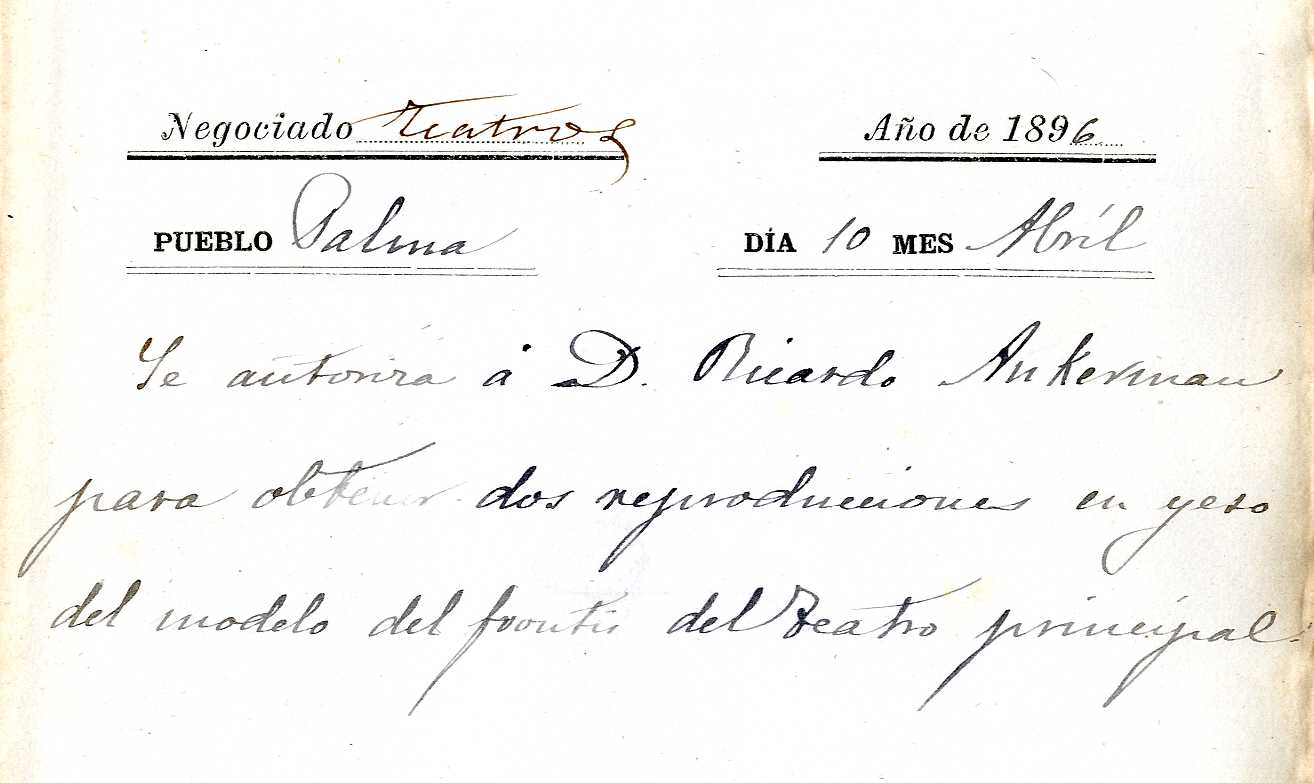 Negociado Teatros Año de 1896
PUEBLO Palma DÍA 10 MES Abríl
Se autoriza á D. Ricardo Ankerman
para obtener dos reproducciones en yeso
del modelo del frontis del Teatro principal.